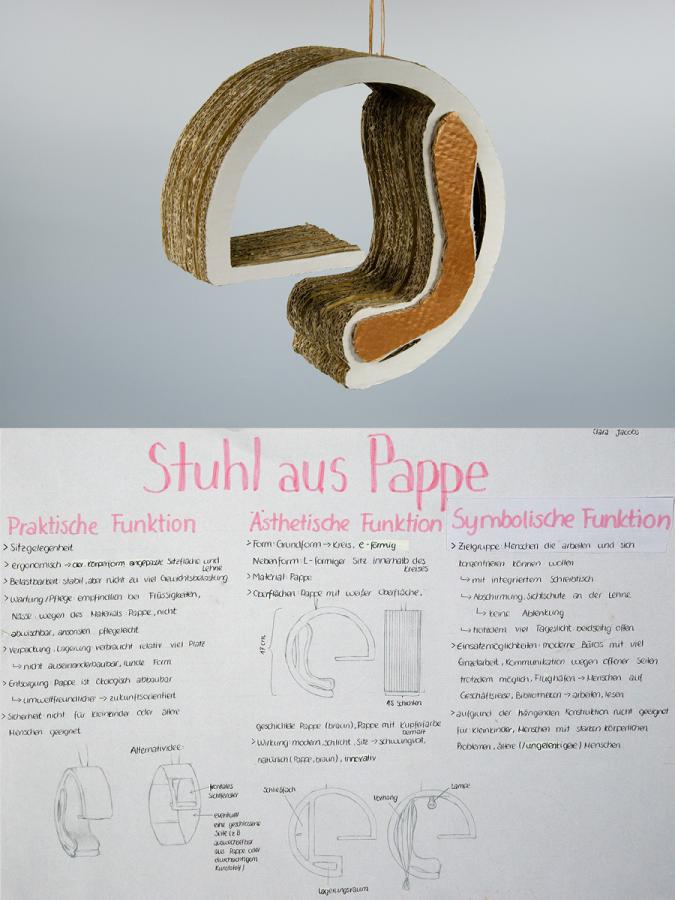 Clara Jacobs
Stuhl aus Pappe
Praktische Funktion
> Sitzgelegenheit
> ergonomisch → der Körperform angepasste Sitzfläche und
Lehne
> Belastbarkeit: stabil, aber nicht zu viel Gewichtsbelastung
> Wartung/Pflege: empfindlich bei Flüssigkeiten,
Nässe wegen des Materials Pappe, nicht
abwischbar, ansonsten pflegeleicht
> Verpackung, Lagerung: verbraucht relativ viel Platz
↳ nicht auseinanderbaubar, runde Form
> Entsorgung: Pappe ist ökologisch abbaubar
↳ umweltfreundlicher → zukunftsorientiert
> Sicherheit: nicht für Kleinkinder oder ältere
Menschen geeignet
Alternatividee:
frontales
Sichtfenster
eventuell
eine geschlossene
Seite (z.B.
auswechselbar
aus Pappe oder
durchsichtigem
Kunststoff)
Ästhetische Funktion
> Form: Grundform → Kreis, e-förmig
Nebenform: L-förmiger Sitz innerhalb des
Kreises
> Material: Pappe
> Oberflächen: Pappe mit weißer Oberfläche,
17 cm
18 Schichten
geschichtete Pappe (braun), Pappe mit Kupferfarbe
bemalt
> Wirkung: modern, schlicht, Sitz → schwungvoll,
natürlich (Pappe, braun), innovativ
Schließfach
Lagerungsraum
Vorhang
Lampe
Symbolische Funktion
> Zielgruppe: Menschen die arbeiten und sich
konzentrieren können wollen
↳ mit integriertem Schreibtisch
↳ Abschirmung, Sichtschutz an der Lehne
↳ keine Ablenkung
↳ trotzdem viel Tageslicht, beidseitig offen
> Einsatzmöglichkeiten: moderne Büros mit viel
Einzelarbeit, Kommunikation wegen offener Seiten
trotzdem möglich, Flughafen → Menschen auf
Geschäftsreise, Bibliotheken → arbeiten, lesen
> aufgrund der hängenden Konstruktion nicht geeignet
für Kleinkinder, Menschen mit starken körperlichen
Problemen, ältere (/ungelenkige) Menschen